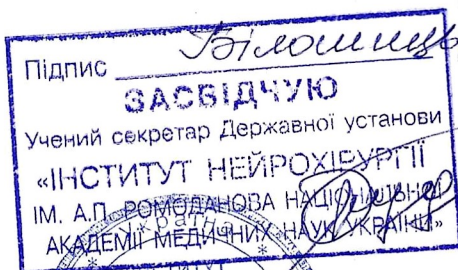 Підпис Білошиць
ЗАСВІДЧУЮ
Учений секретар Державної установи
«ІНСТИТУТ НЕЙРОХІРУРГІЇ
ІМ. А.П. РОМОДАНОВА НАЦІОНАЛЬНОЇ
АКАДЕМІЇ МЕДИЧНИХ НАУК УКРАЇНИ»